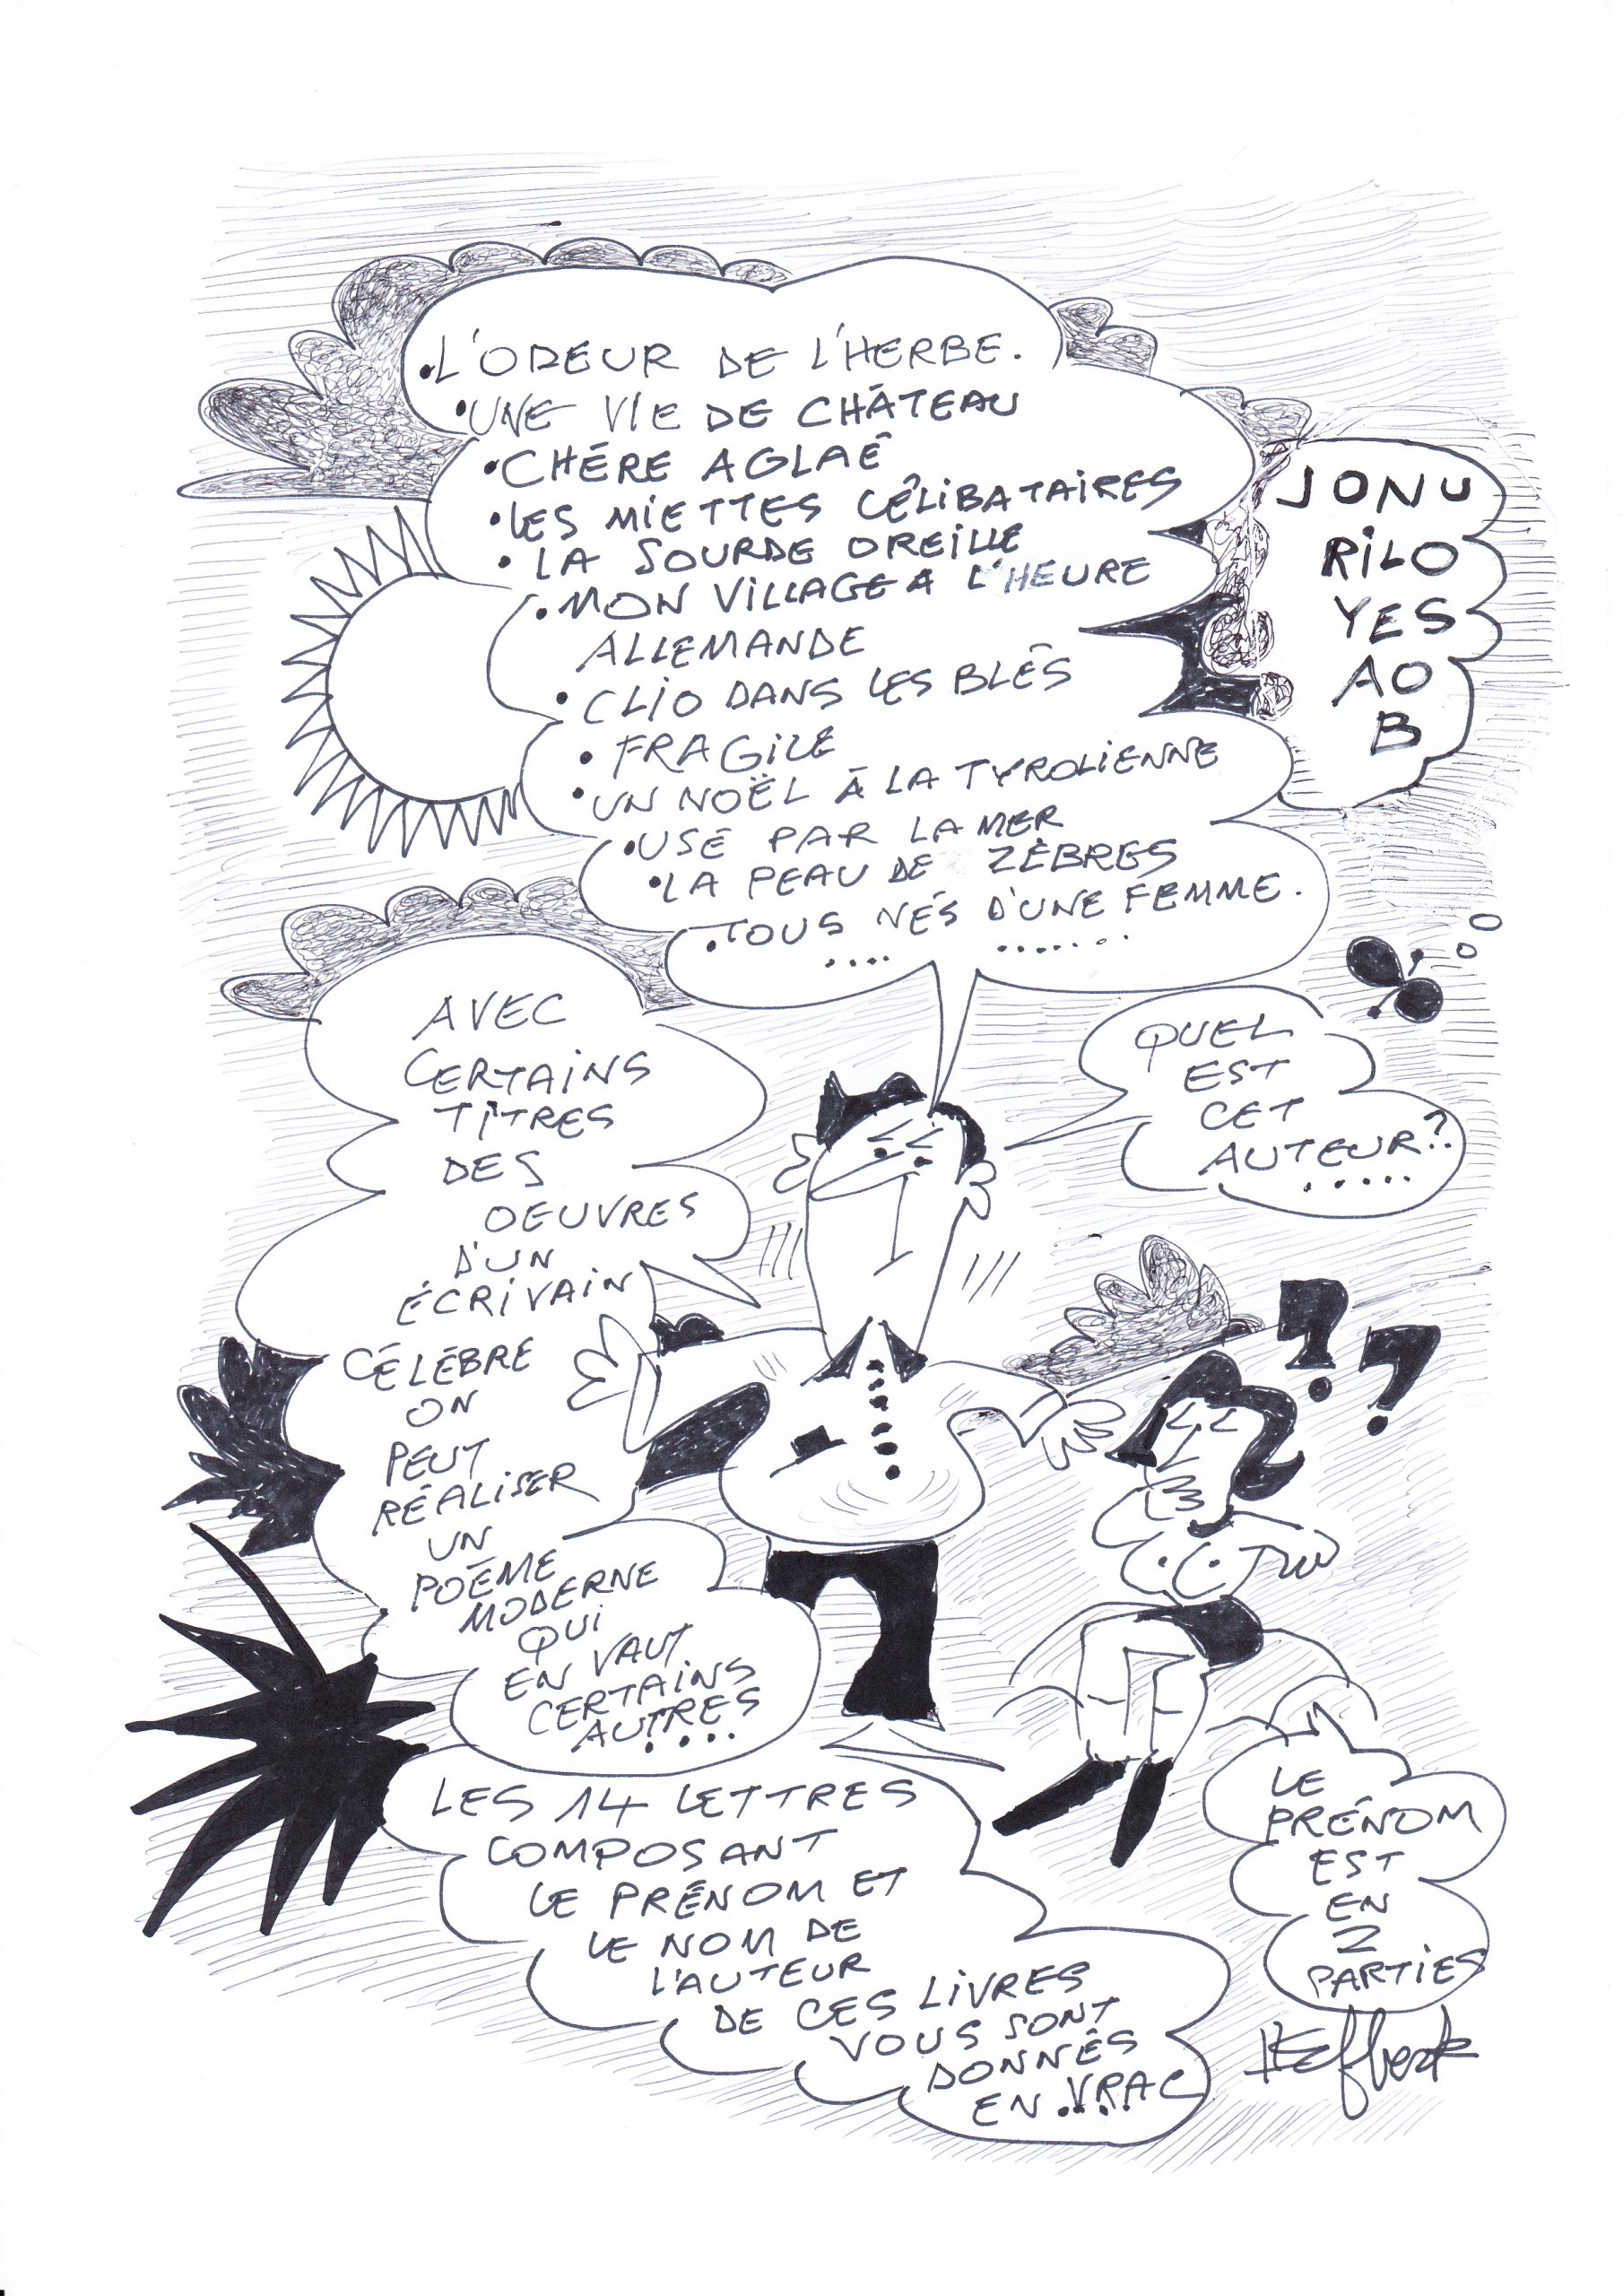 •L'ODEUR DE L'HERBE.
•UNE VIE DE CHÂTEAU
•CHÉRE AGLAÉ
•LES MIETTES CÉLIBATAIRES
•LA SOURDE OREILLE
•MON VILLAGE A L'HEURE
ALLEMANDE
•CLIO DANS LES BLÉS
•FRAGILE
•UN NOËL À LA TYROLIENNE
•USÉ PAR LA MER
•LA PEAU DE ZÈBRES
•TOUS NÉS D'UNE FEMME.
.... .......
JONU
RILO
YES
AO
B
QUEL
EST
CET
AUTEUR?
.....
AVEC
CERTAINS
TITRES
DES
OEUVRES
D'UN
ÉCRIVAIN
CÉLÉBRE
ON
PEUT
RÉALISER
UN
POÉME
MODERNE
QUI
EN VAUT
CERTAINS
AUTRES
....
! ?
LES 14 LETTRES
COMPOSANT
LE PRÉNOM ET
LE NOM DE
L'AUTEUR
DE CES LIVRES
VOUS SONT
DONNÉS
EN VRAC
....
LE
PRÉNOM
EST
EN
2
PARTIES